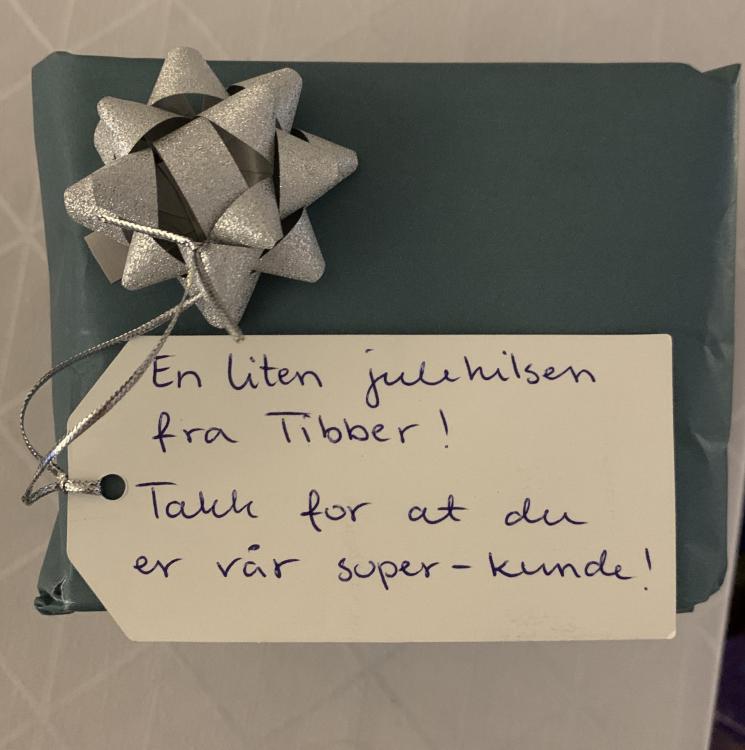 En liten julehilsen
fra Tibber!
Takk for at du
er vår super-kunde!